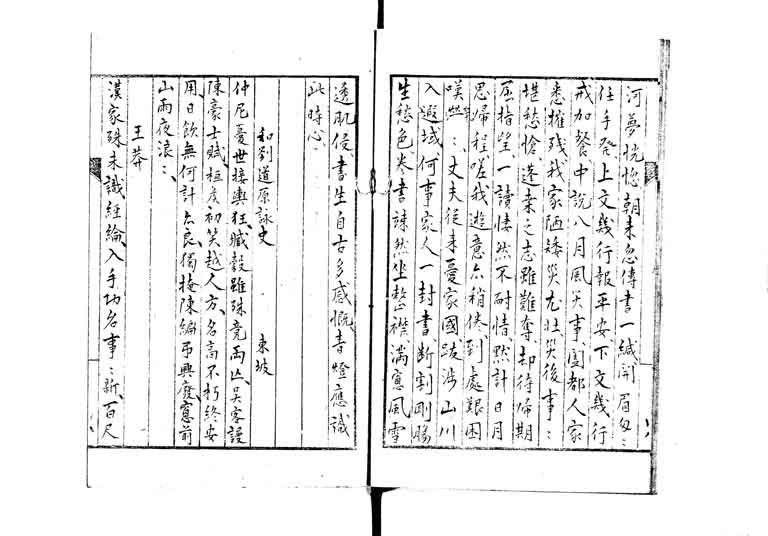 河夢恍惚朝来忽傳書一緘開眉匆〻
任手発上文幾行報平安下文幾行
戒加餐中説八月風大事闔都人家
悉摧残我家陋矮災尤壮災後事〻
堪愁愴蓬桑之志雖難奪却待帰期
屈指望一讀悽然不耐情黙計日月
思帰程嗟我遊意亦稍倦到處艱困
嘆嶮〻丈夫従来憂家國跋渉山川
入遐域何事家人一封書断割剛腸
生愁色巻書竦然坐整襟満窓風雪
透肌侵書生自古多感慨青燈應識
此時心
和劉道原詠史 東坡
仲尼憂世接輿狂臧穀雖殊竟両亡呉客謾
陳豪士賦桓侯初笑越人方名高不朽終安
用日飲無何計亦良獨掩陳編吊興廃窓前
山雨夜浪〻
王莽
漢家殊未識経綸入手功名事〻新百尺